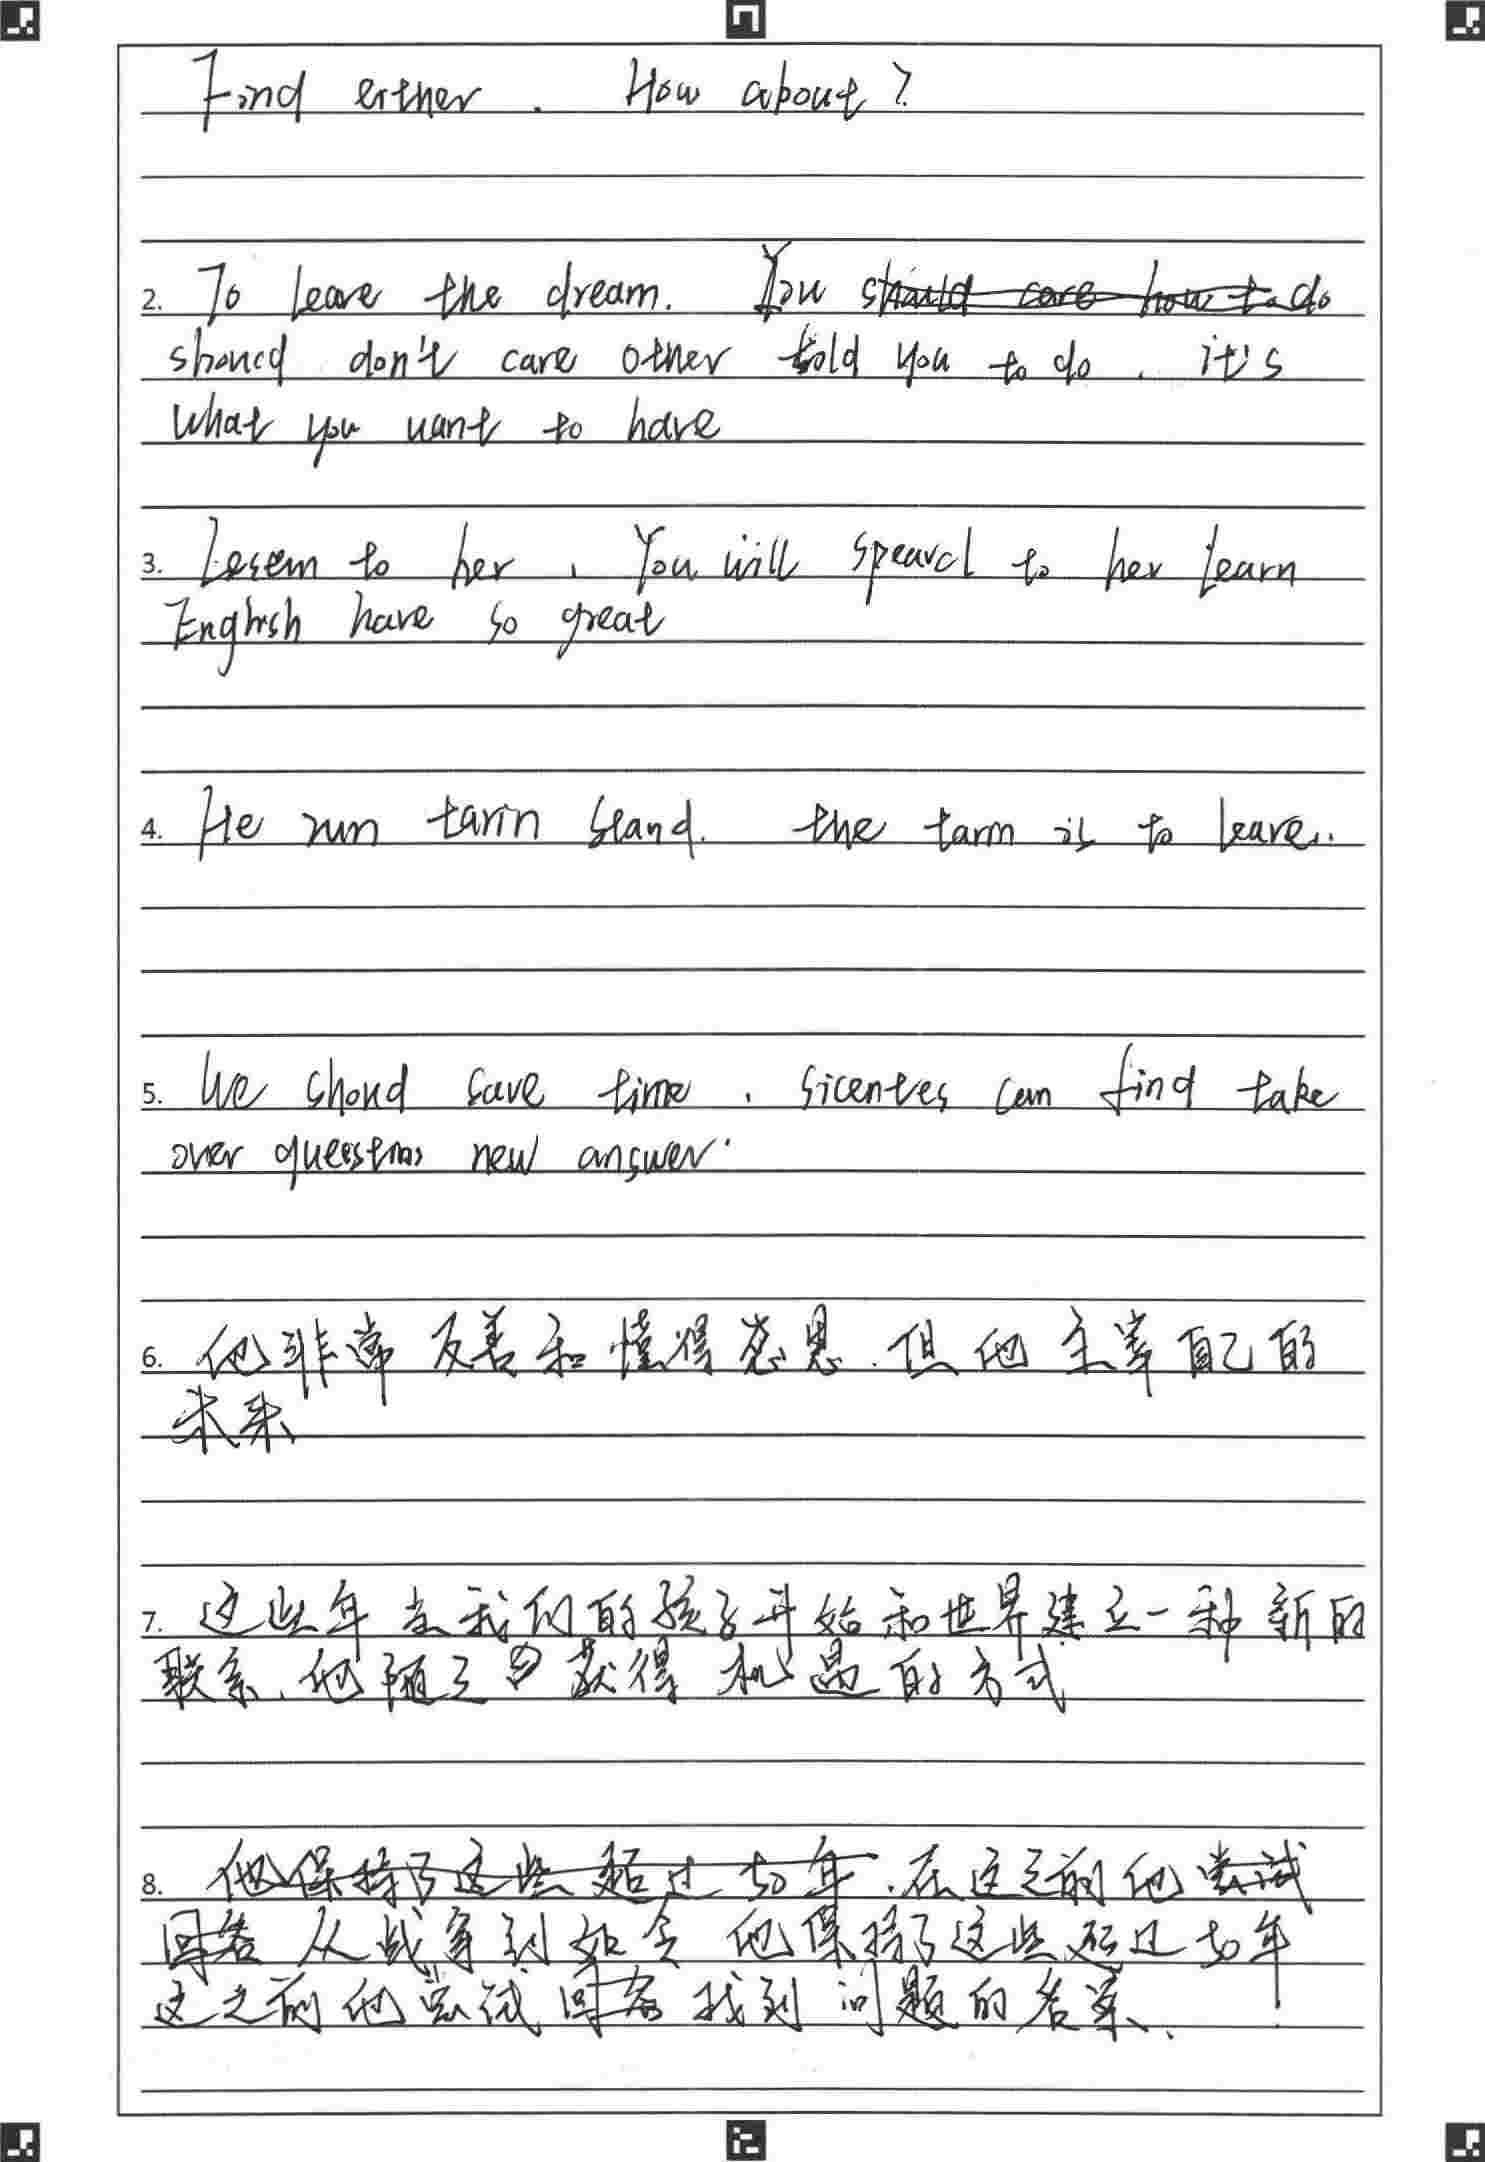 Find either. How about?
2. To leave the dream. You should care how to do
shoucd don't care other told you to do. it's
what you want to have
3. Lesem to her, You will spearcl to her learn
English have so great
4. He run tarin stand. the tarin is to leave..
5. We shoud save time. Sicentes can find take
over queestnos new answer.
6. 他非常友善和懂得感恩.但他主宰自己的
未来
7. 这些年当我们的孩子开始和世界建立一种新的
联系.他随之获得机遇的方式
8. 他保持了这些超过50年.在这之前他尝试
回答从战争到如今他保持了这些超过50年
这之前他尝试回答找到问题的答案.